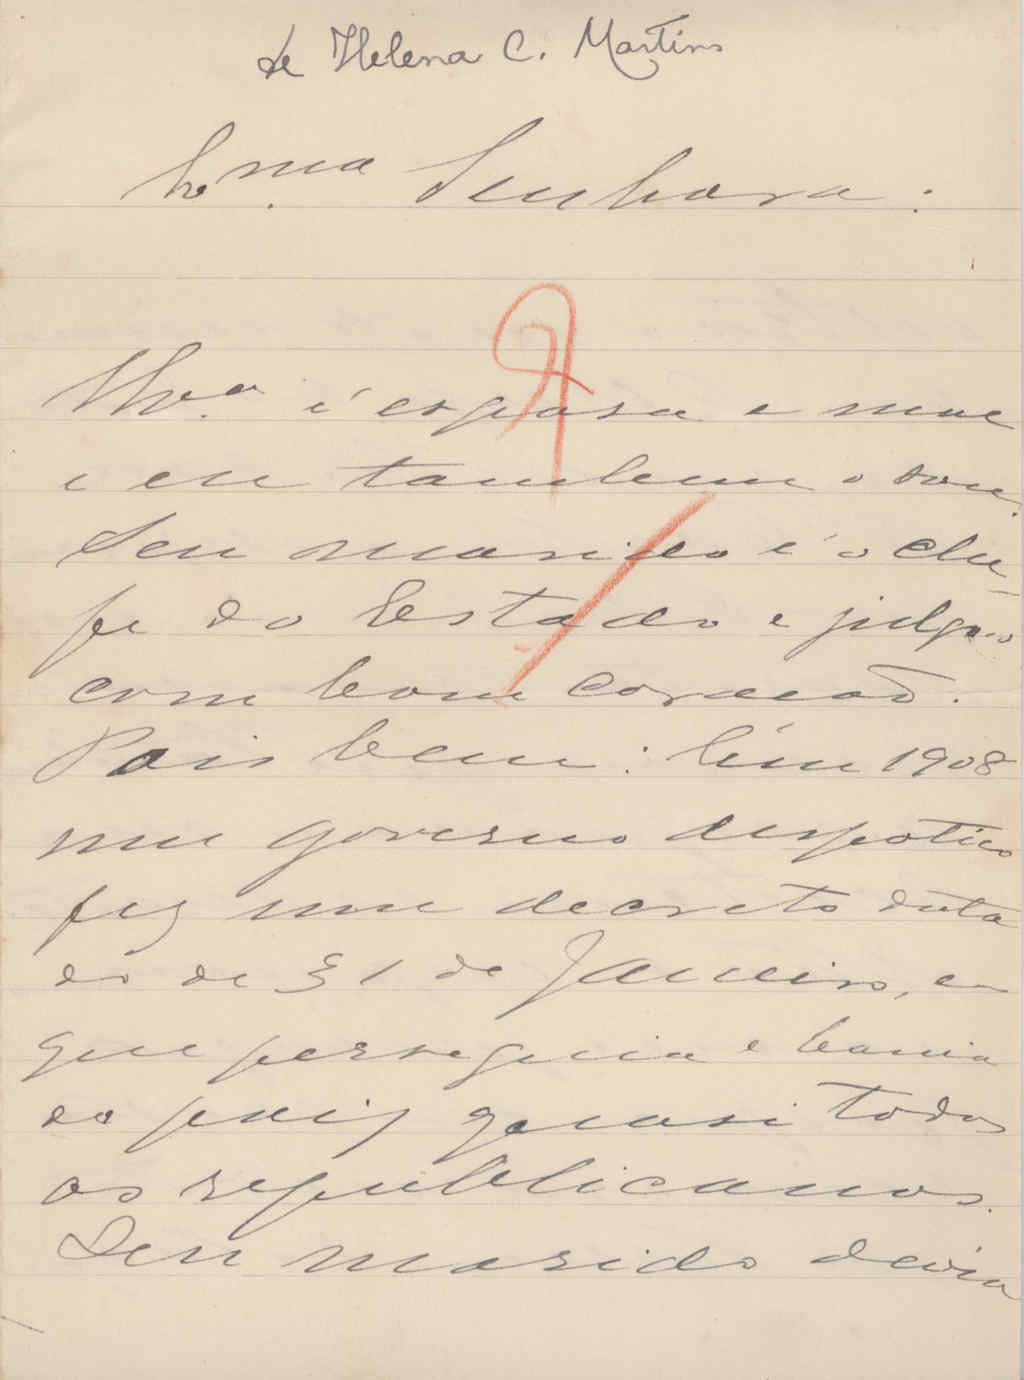 de Helena C. Martins
Exma. Senhora:
V. Exa. é esposa e mãe
e eu tambem o sou.
Seu marido é o che-
fe do Estado e julgo-o
com bom coração.
Pois bem: Em 1908
um governo despotico
fez um decreto data
do de 31 de Janeiro, em
que perseguia e bania
do paiz quasi todos
os republicanos.
Seu marido devia